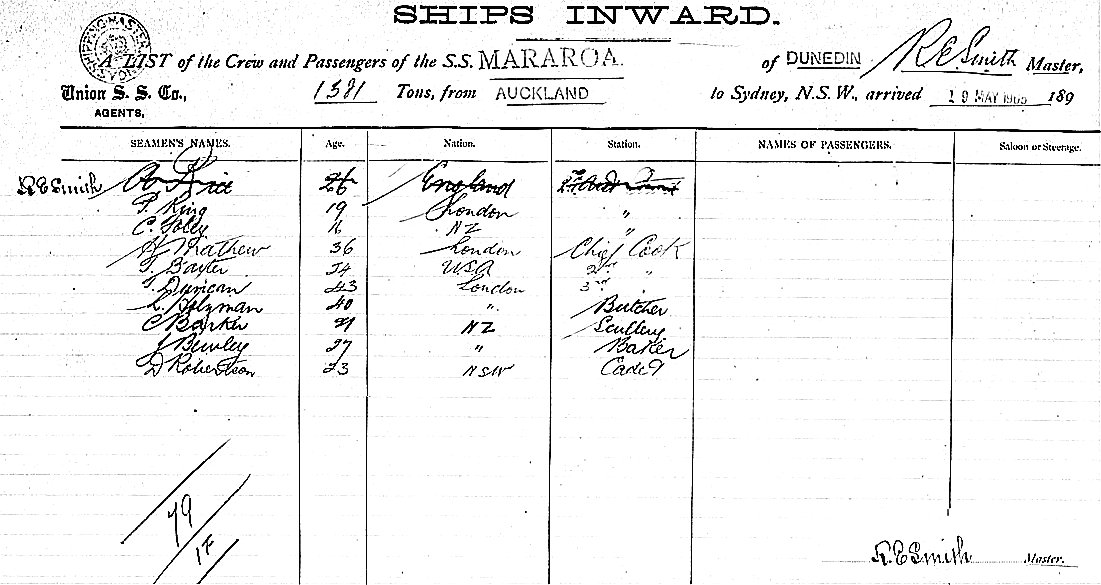 SHIPS INWARD.
SHIPPING MASTER
A LIST of the Crew and Passengers of the S.S. MARAROA. of DUNEDIN R E Smith Master,
Union S. S. Co., 1381 Tons, from AUCKLAND to Sydney, N.S.W., arrived 19 MAY 1905 189
AGENTS,
SEAMEN'S NAMES. Age. Nation. Station. NAMES OF PASSENGERS. Saloon or Steerage.
R E Smith Price 26 England
King 19 London "
C. Foley NZ "
H Mathew 36 London Chief Cook
Baxter 24 USA 2nd "
Duncan 43 London 3rd
L. Holzman 40 " Butcher
C Barker 21 NZ Scullery
J Bewley 27 " Baker
D Robertson 23 NSW Cadet
79
1F
R. E Smith Master.